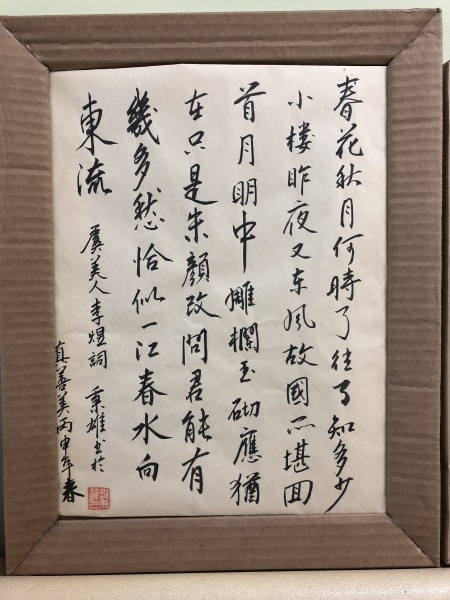 春花秋月何時了往事知多少
小楼昨夜又东风故國不堪囬
首月明中雕欄玉砌應猶
在只是朱顏改問君能有
幾多愁恰似一江春水向
東流 虞美人李煜詞 秉雄书於
真善美丙申年春